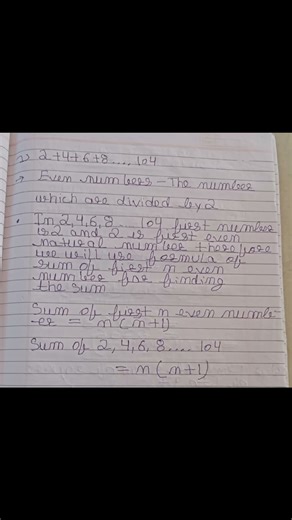 2) 2+4+6+8.... 104
→ Even numbers - The number
which are divided by 2
• In 2,4,6,8....104 first number
is 2 and 2 is first even
natural number therefore
we will use formula of
sum of first n even
number for finding
the sum
Sum of first n even numb-
er = n (n+1)
Sum of 2, 4, 6, 8.... 104
= n (n+1)